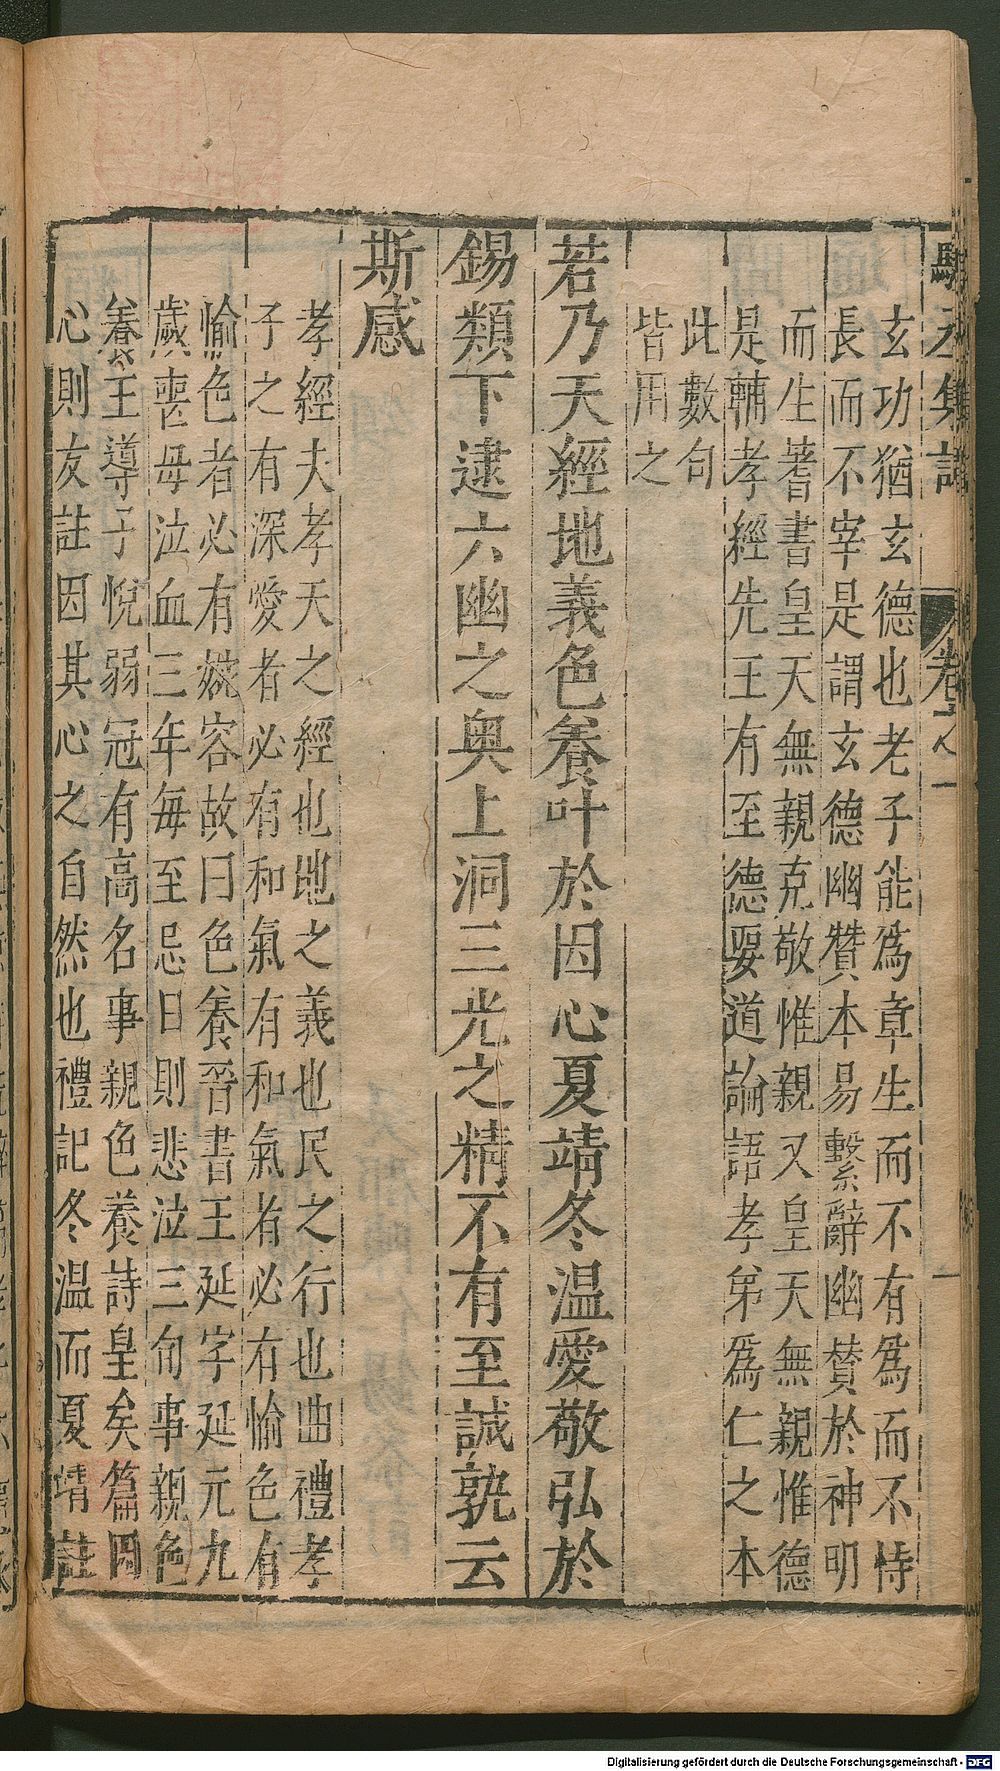 玄功猶玄德也老子能爲章生而不有爲而不恃
長而不宰是謂玄德幽贊本易繫辭幽贊於神明
而生蓍書皇天無親克敬惟親又皇天無親惟德
是輔孝經先王有至德要道論語孝弟爲仁之本
此數句
皆用之
若乃天經地義色養叶於因心夏靖冬温愛敬弘於
錫類下逮六幽之奥上洞三光之精不有至誠孰云
斯感
孝經夫孝天之經也地之義也民之行也曲禮孝
子之有深愛者必有和氣有和氣者必有愉色有
愉色者必有婉容故曰色養晉書王延字延元九
歲喪母泣血三年每至忌日則悲泣三旬事親色
養王導子悅弱冠有高名事親色養詩皇矣篇因
心則友註因其心之自然也禮記冬温而夏凊註
Digitalisierung gefördert durch die Deutsche Forschungsgemeinschaft - DFG